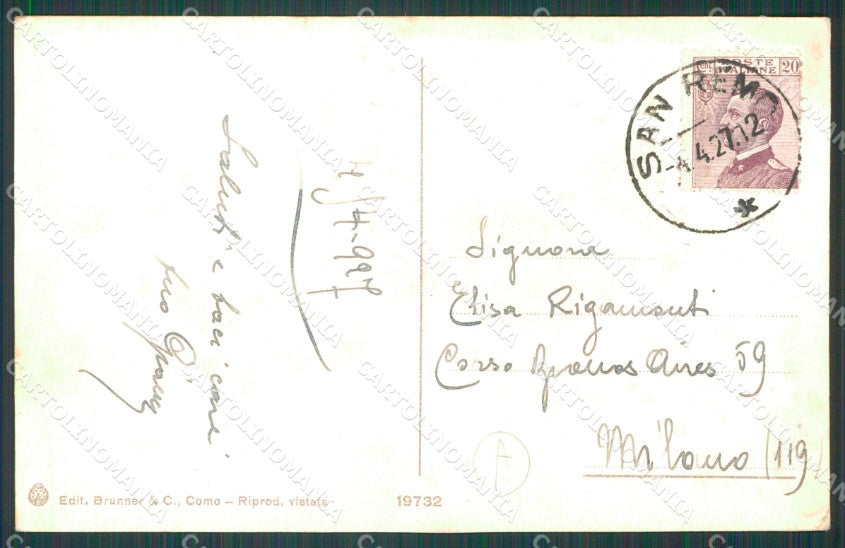 Saluti e baci cari
tuo
4/4-927
POSTE ITALIANE
20
SAN REMO
-4.4.27.12
Signora
Elisa Rigamonti
Corso Buenos Aires 59
Milano (119)
A
Edit. Brunner & C., Como – Riprod. vietata
19732
CARTOLINOMANIA